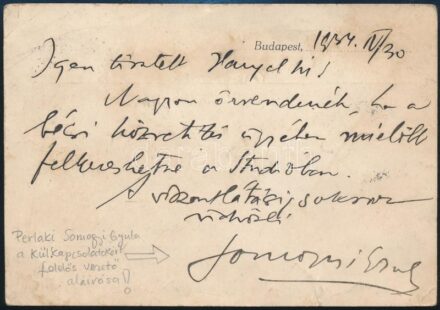 Budapest, 1934. IV/30
Igen tisztelt
Nagyon örvendenék, ha a
bécsi közvetítés ügyében mielőbb
felkereshetne a Studioban.
A viszontlátásig sokszor
üdvözli
Somogyi Gyula
Perlaki Somogyi Gyula
a külkapcsolatokért
felelős vezető
aláírása!